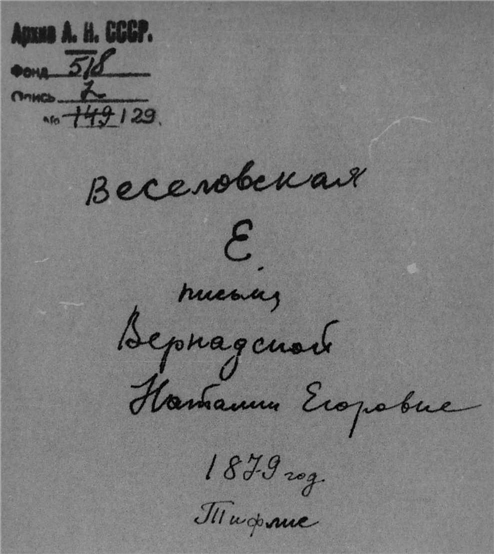 Архив А. Н. СССР.
Фонд 518
Опись 7
№ 149 129.
Веселовская
Е.
письма
Вернадской
Наталии Егоровне
1879 год.
Тифлис